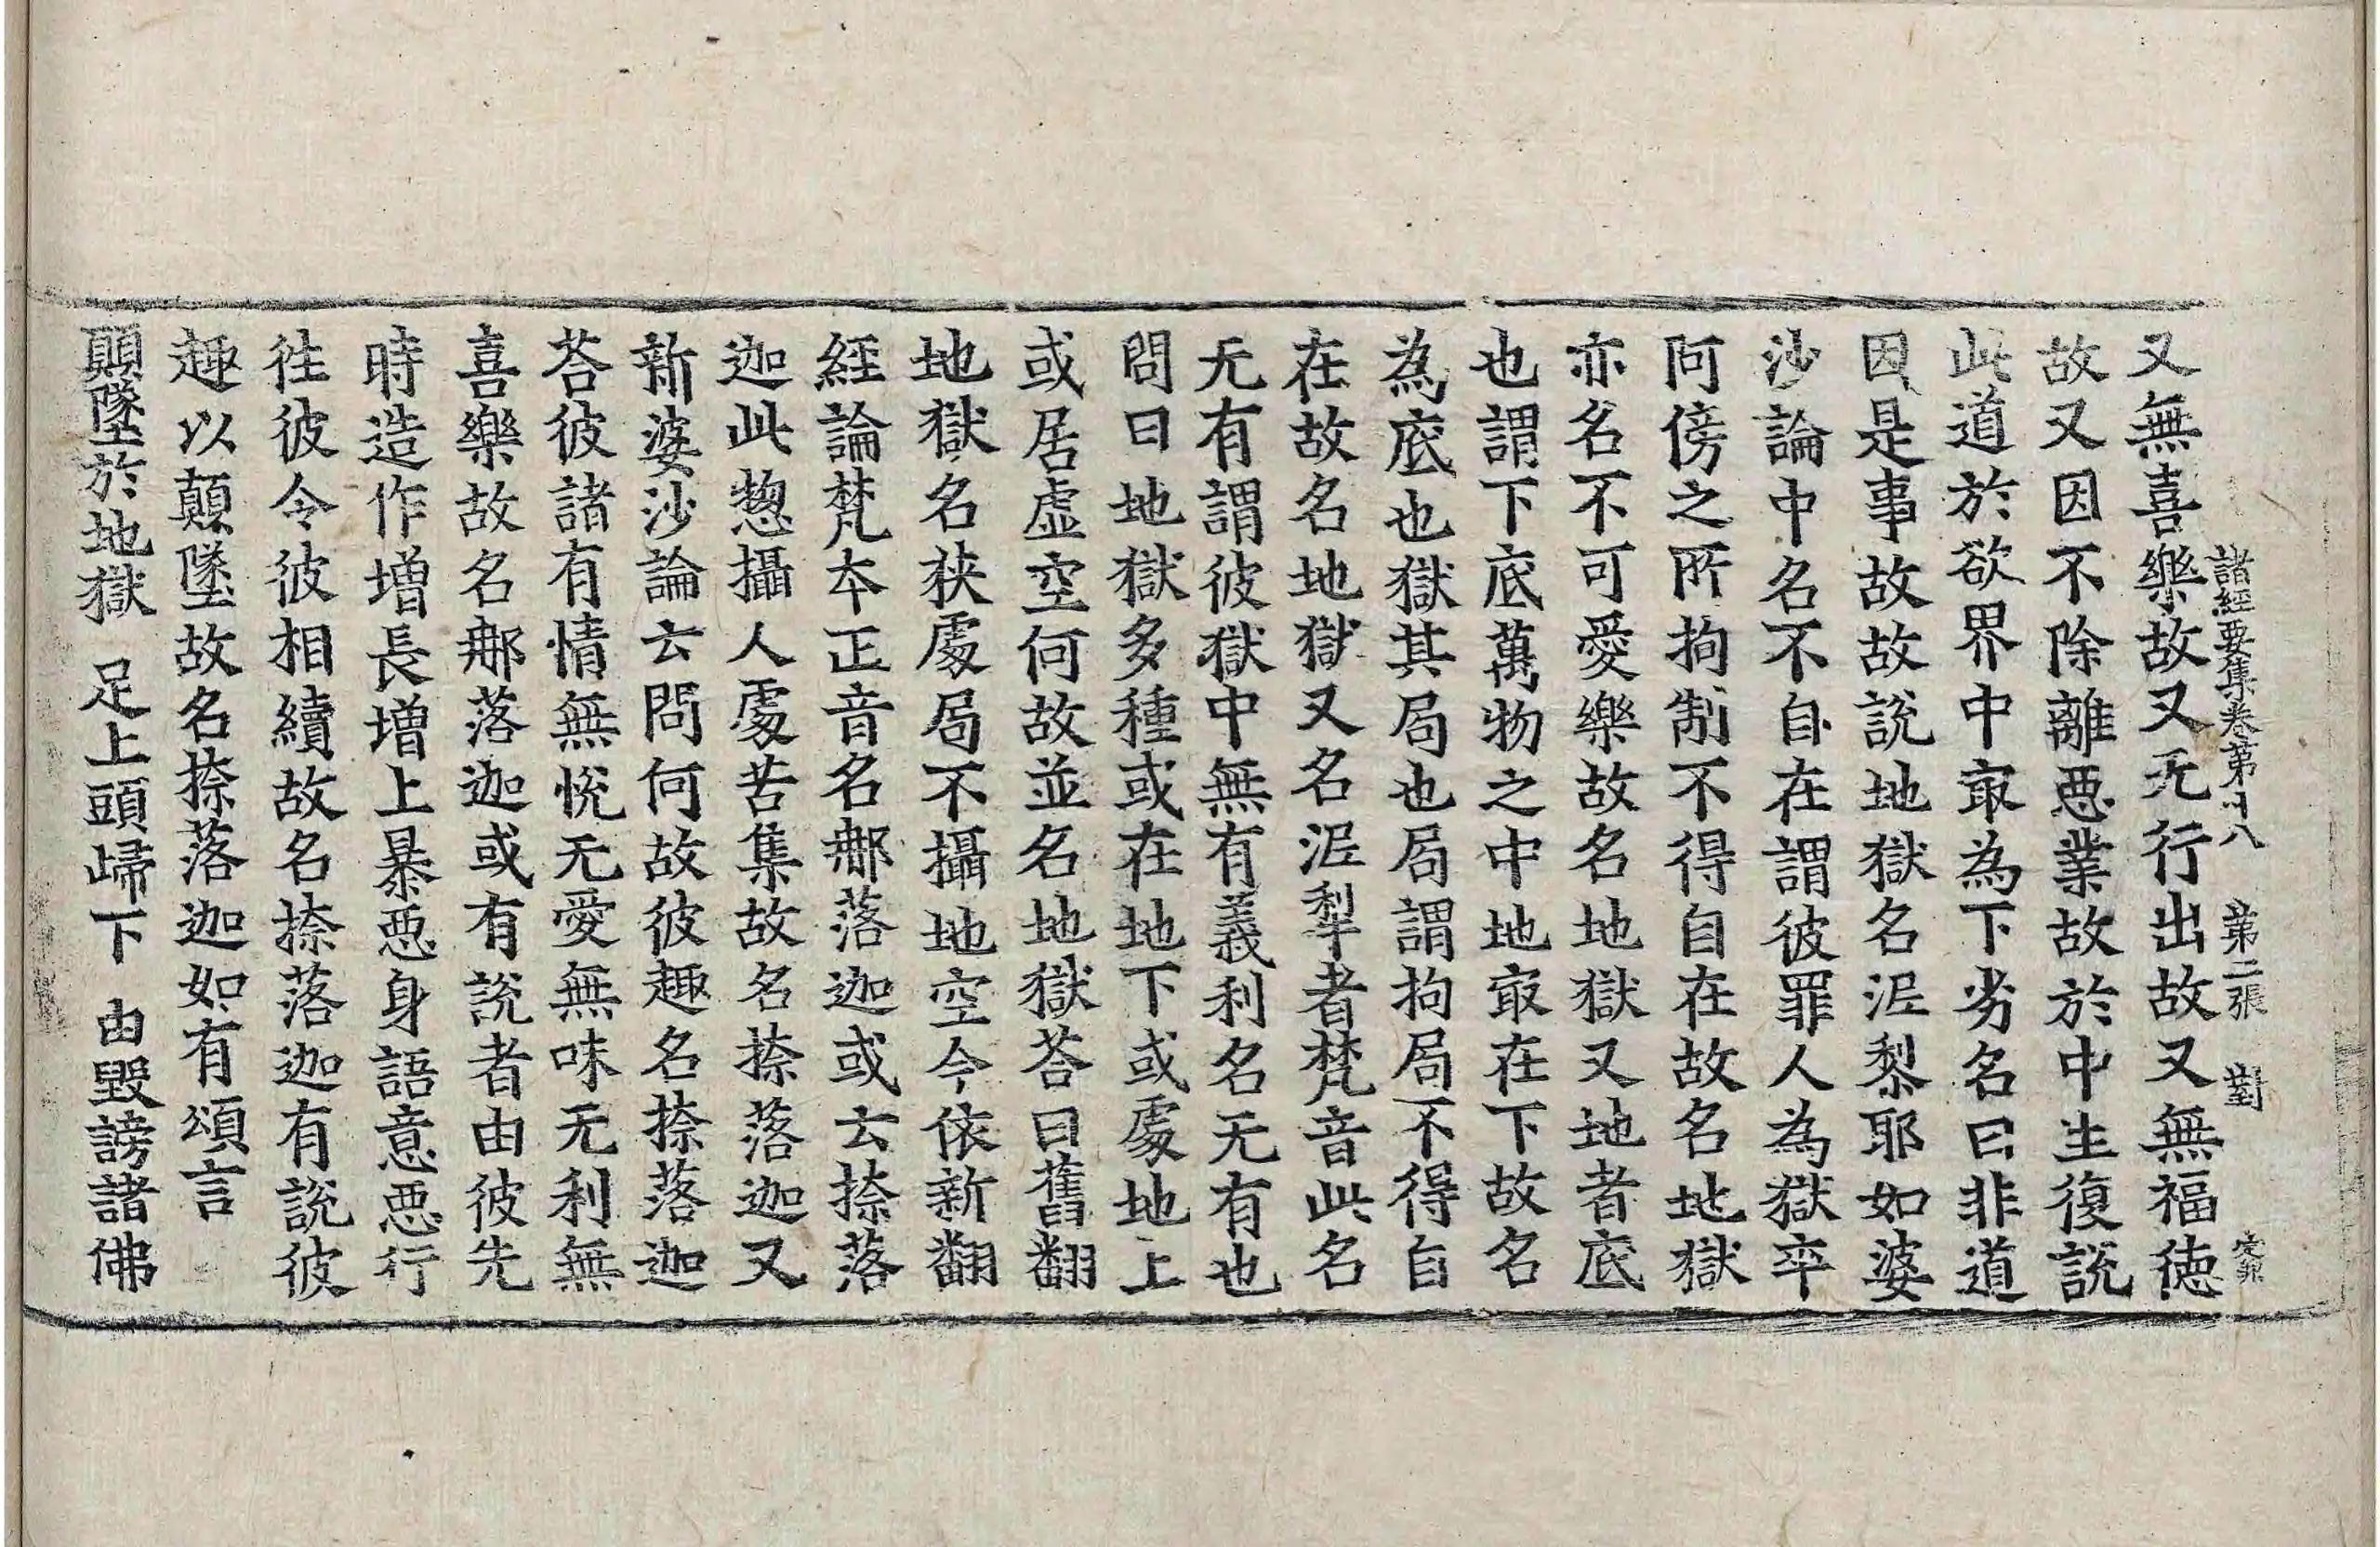 諸經要集卷第十八 第二張 對
又無喜樂故又无行出故又無福徳
故又因不除離悪業故於中生復説
此道於欲界中㝡為下劣名曰非道
因是事故故說地獄名泥犁耶如婆
沙論中名不自在謂彼罪人為獄卒
阿傍之所拘制不得自在故名地獄
亦名不可愛樂故名地獄又地者底
也謂下底萬物之中地㝡在下故名
為底也獄其局也局謂拘局不得自
在故名地獄又名泥犁者梵音此名
无有謂彼獄中無有義利名无有也
問曰地獄多種或在地下或處地上
或居虛空何故並名地獄荅曰舊翻
地獄名狹處局不攝地空今依新翻
經論梵本正音名那落迦或云捺落
迦此惣攝人處苦集故名捺落迦又
新婆沙論云問何故彼趣名捺落迦
荅彼諸有情無悅无愛無味无利無
喜樂故名那落迦或有說者由彼先
時造作增長增上暴悪身語意悪行
往彼令彼相續故名捺落迦有說彼
趣以顛墜故名捺落迦如有頌言
顛墜於地獄 足上頭歸下 由毀謗諸佛